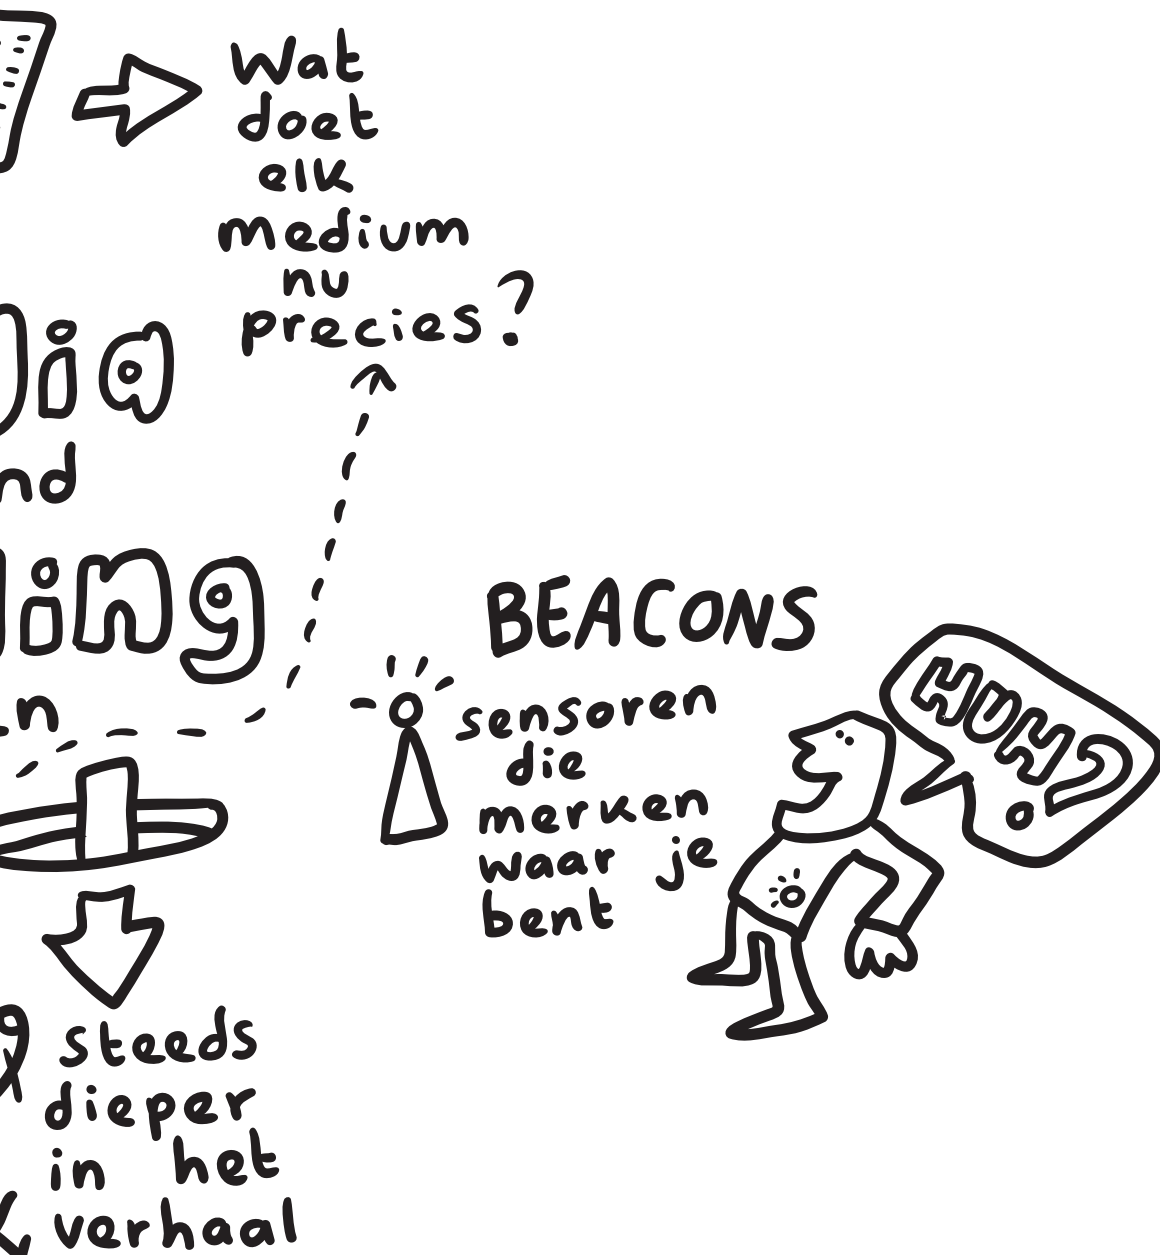 Wat
doet
elk
medium
nu
precies?
dia
nd
ling
n
BEACONS
sensoren
die
merken
waar je
bent
HUH?
steeds
dieper
in het
verhaal